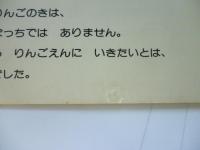 りんごのきは、
っちでは ありません。
りんごえんに いきたいとは、
でした。